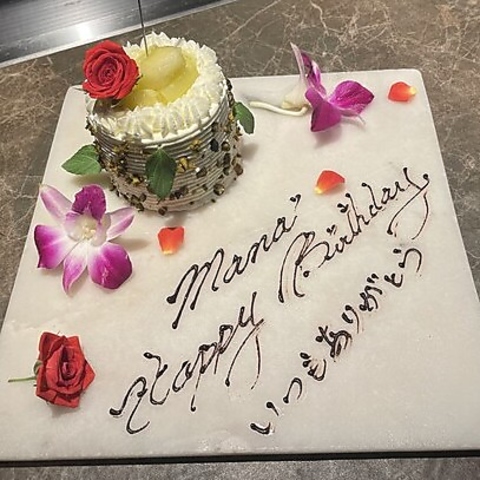 Mana
Happy Birthday
いつもありがとう